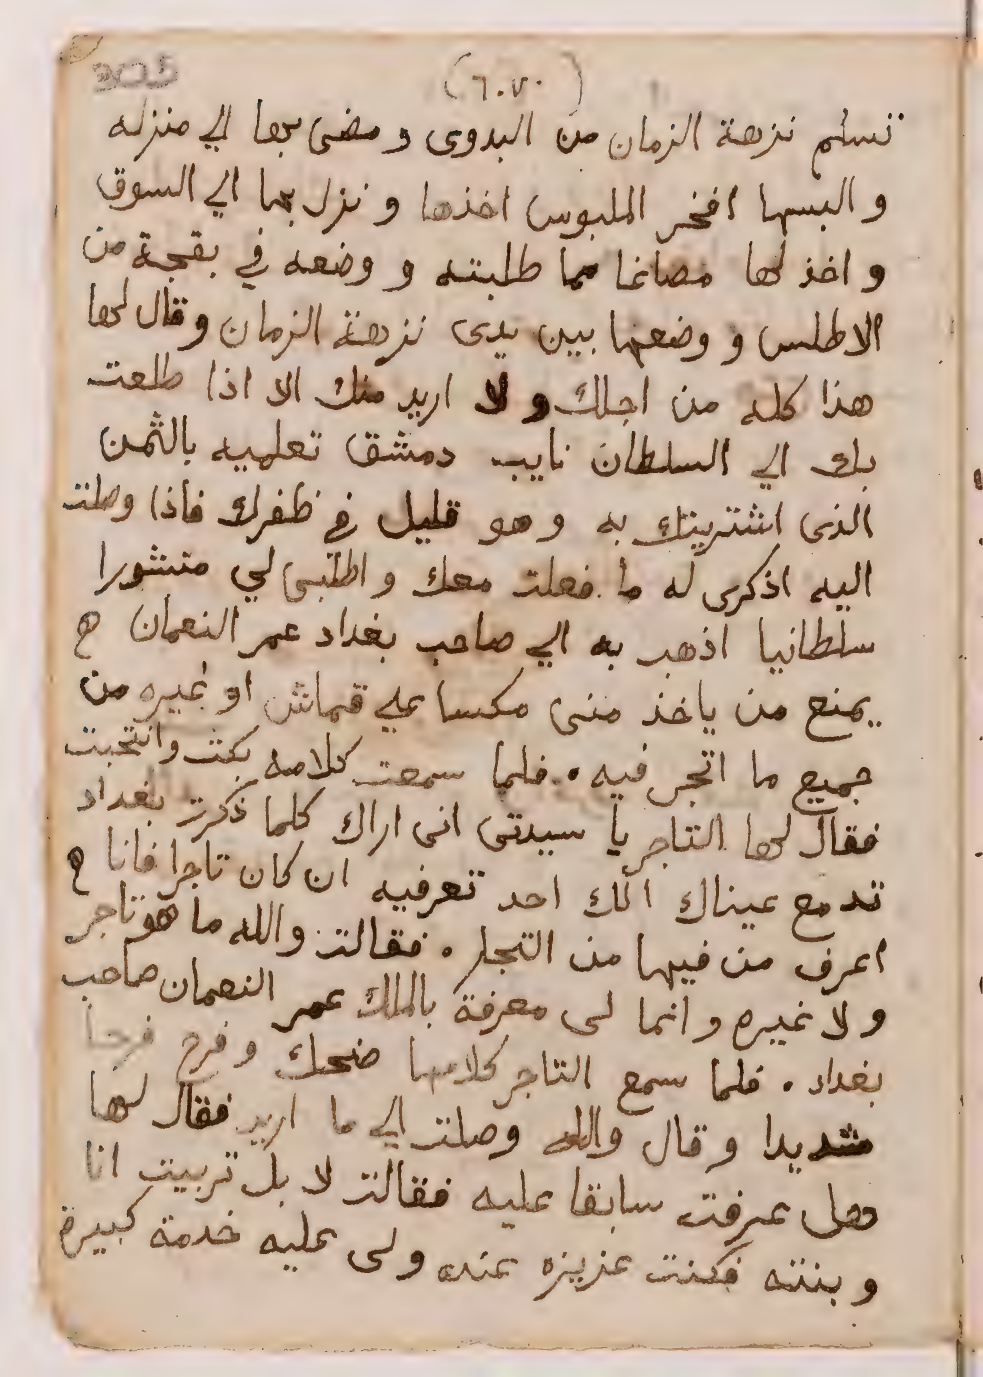 (٦٠٧٠)
تسلم نزهة الزمان من البدوى و مضى بها الي منزله
و البسها افخر الملبوس اخذها و نزل بها الي السوق
و اخذ لها مصاغا مما طلبته و وضعه في بقجة من
الاطلس و وضعها بين يدى نزهة الزمان وقال لها
هذا كله من اجلك و لا اريد منك الا اذا طلعت
بك الي السلطان نايب دمشق تعلميه بالثمن
الذى اشتريتك به و هو قليل في ظفرك فاذا وصلت
اليه اذكرى له ما فعلت معك و اطلبى لي منشورا
سلطانيا اذهب به الي صاحب بغداد عمر النعمان
يمنع من ياخذ منى مكسا علي قماش او غيره من
جميع ما اتجر فيه . فلما سمعت كلامه بكت وانتحبت
فقال لها التاجر يا سيدتى انى اراك كلما ذكرت بغداد
تدمع عيناك الك احد تعرفيه ان كان تاجرا فانا
اعرف من فيها من التجار . فقالت والله ما هو تاجر
و لا غيره و انما لى معرفة بالملك عمر النعمان صاحب
بغداد . فلما سمع التاجر كلامها ضحك و فرح فرحا
شديدا و قال والله وصلت الي ما اريد فقال لها
هل عرفت سابقا عليه فقالت لا بل تربيت انا
و بنته فكنت عزيزه عنده ولى عليه خدمة كبيرة